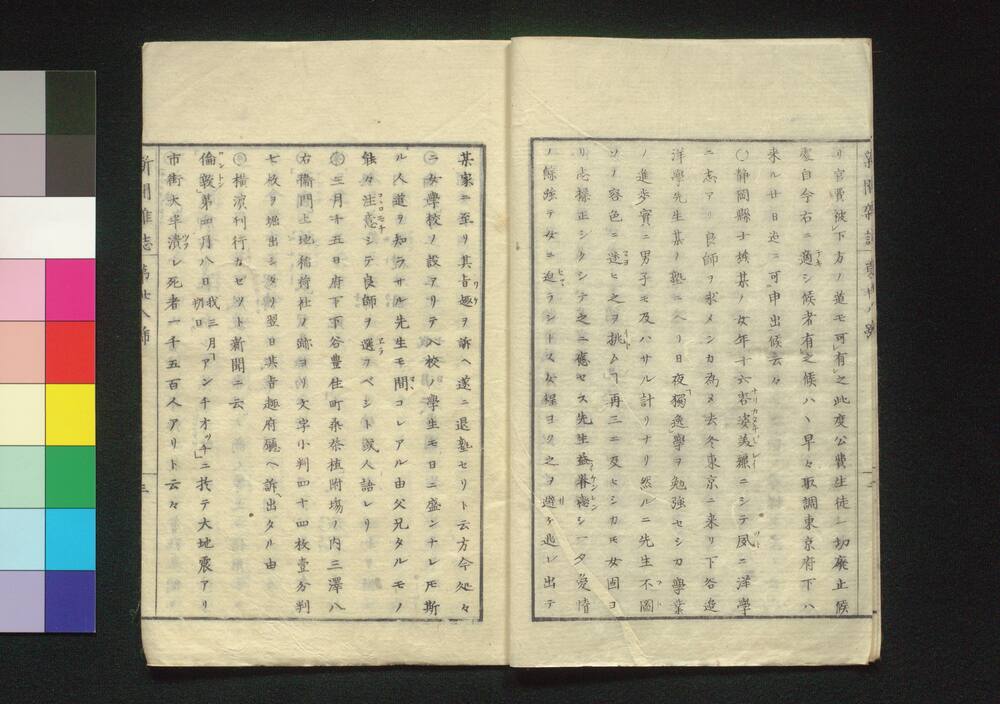 リ官費被下方ノ道モ可有之此度公費生徒一切廃止候
處自今右ニ適シ候者有之候ハヽ早々取調東京府下ハ
来ル廿日迄ニ可申出候云々
〇静岡縣士族某ノ女年十六容姿美麗ニシテ風ニ洋學
ニ志アリ良師ヲ求メンカ為メ去冬東京ニ来リ下谷邉
洋學先生某ノ塾ニ入リ日夜獨逸學ヲ勉強セシカ學業
ノ進歩實ニ男子モ及ハサル計リナリ然ルニ先生不圖
ソノ容色ニ迷ヒ之ヲ挑ムヿ再三ニ及ヒシカモ女固ヨ
リ志操正シクシテ之ニ應セス先生益眷戀シ一夕愛情
ノ餘強テ女ニ迫ラントス女程ヨク之ヲ避ケ逃レ出テ
新聞雑誌 第廿八號
三
某家ニ至リ其旨趣ヲ訴ヘ遂ニ退塾セリト云方今処々
ニ女學校ノ設アリテ入校ノ學生モ日ニ盛ンナレ𪜈斯
ル人道ヲ知ラサル先生モ間コレアル由父兄タルモノ
能々注意シテ良師ヲ選フベシト或人語レリ
〇三月十五日府下下谷豊住町桑茶植附場ノ内三澤八
右衛門上地稲荷社ノ跡ヨリ文字小判四十四枚壹分判
七枚ヲ堀出シタリ翌日其旨趣府廳ヘ訴出タル由
〇横濵刊行カゼット新聞ニ云
倫敦第四月八日我三月朔日アンチオッチニ於テ大地震アリ
市街大半潰レ死者一千五百人アリト云々